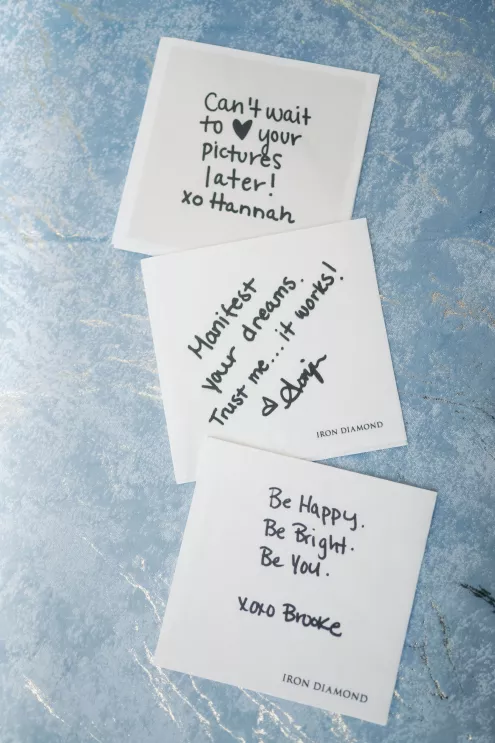 Can't wait
to ♥ your
pictures
later!
xo Hannah
Manifest
your dreams.
Trust me... it works!
IRON DIAMOND
Be Happy.
Be Bright.
Be You.
xoxo Brooke
IRON DIAMOND